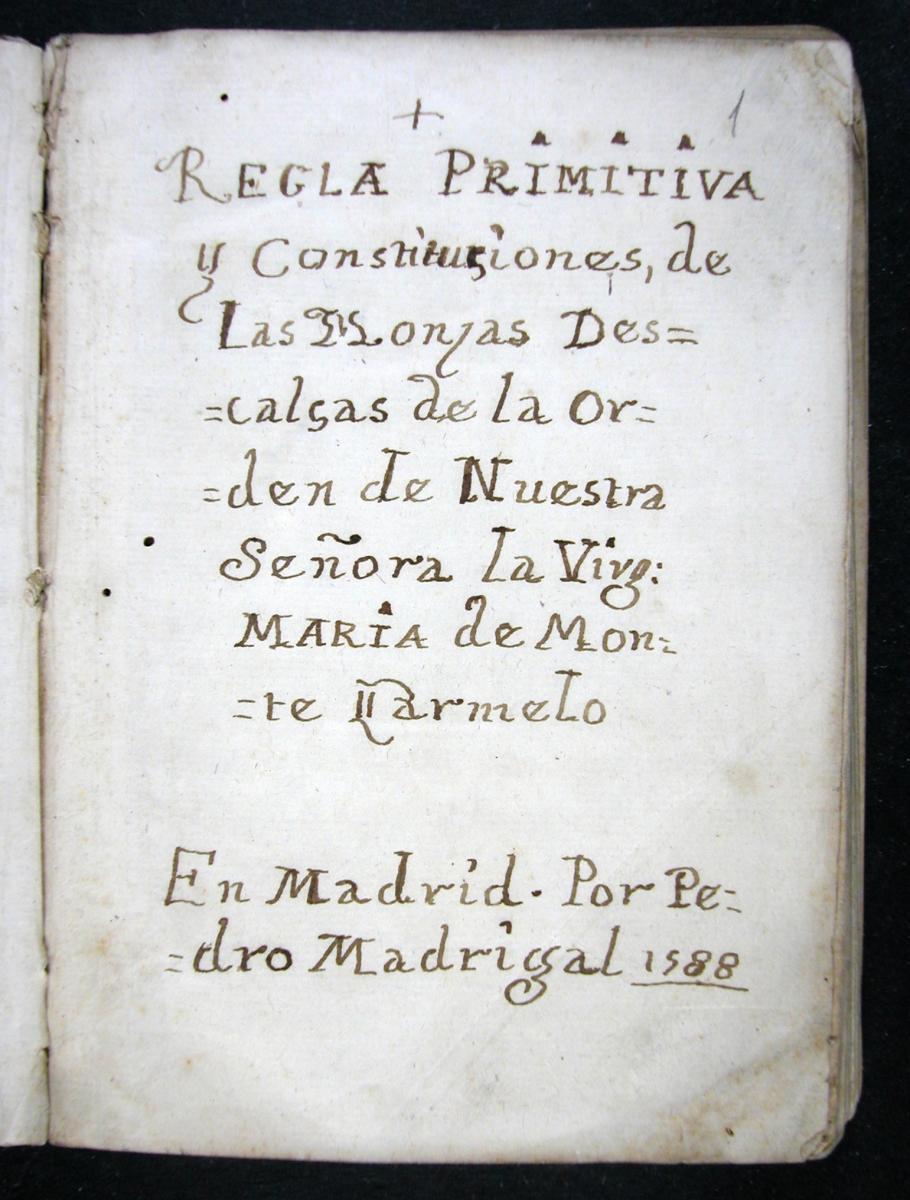 + 1
REGLA PRIMITIVA
y Constituçiones, de
Las Monjas Des=
=calças de la Or=
=den de Nuestra
Señora la Virg:
MARIA de Mon=
=te Carmelo
En Madrid. Por Pe=
=dro Madrigal 1588